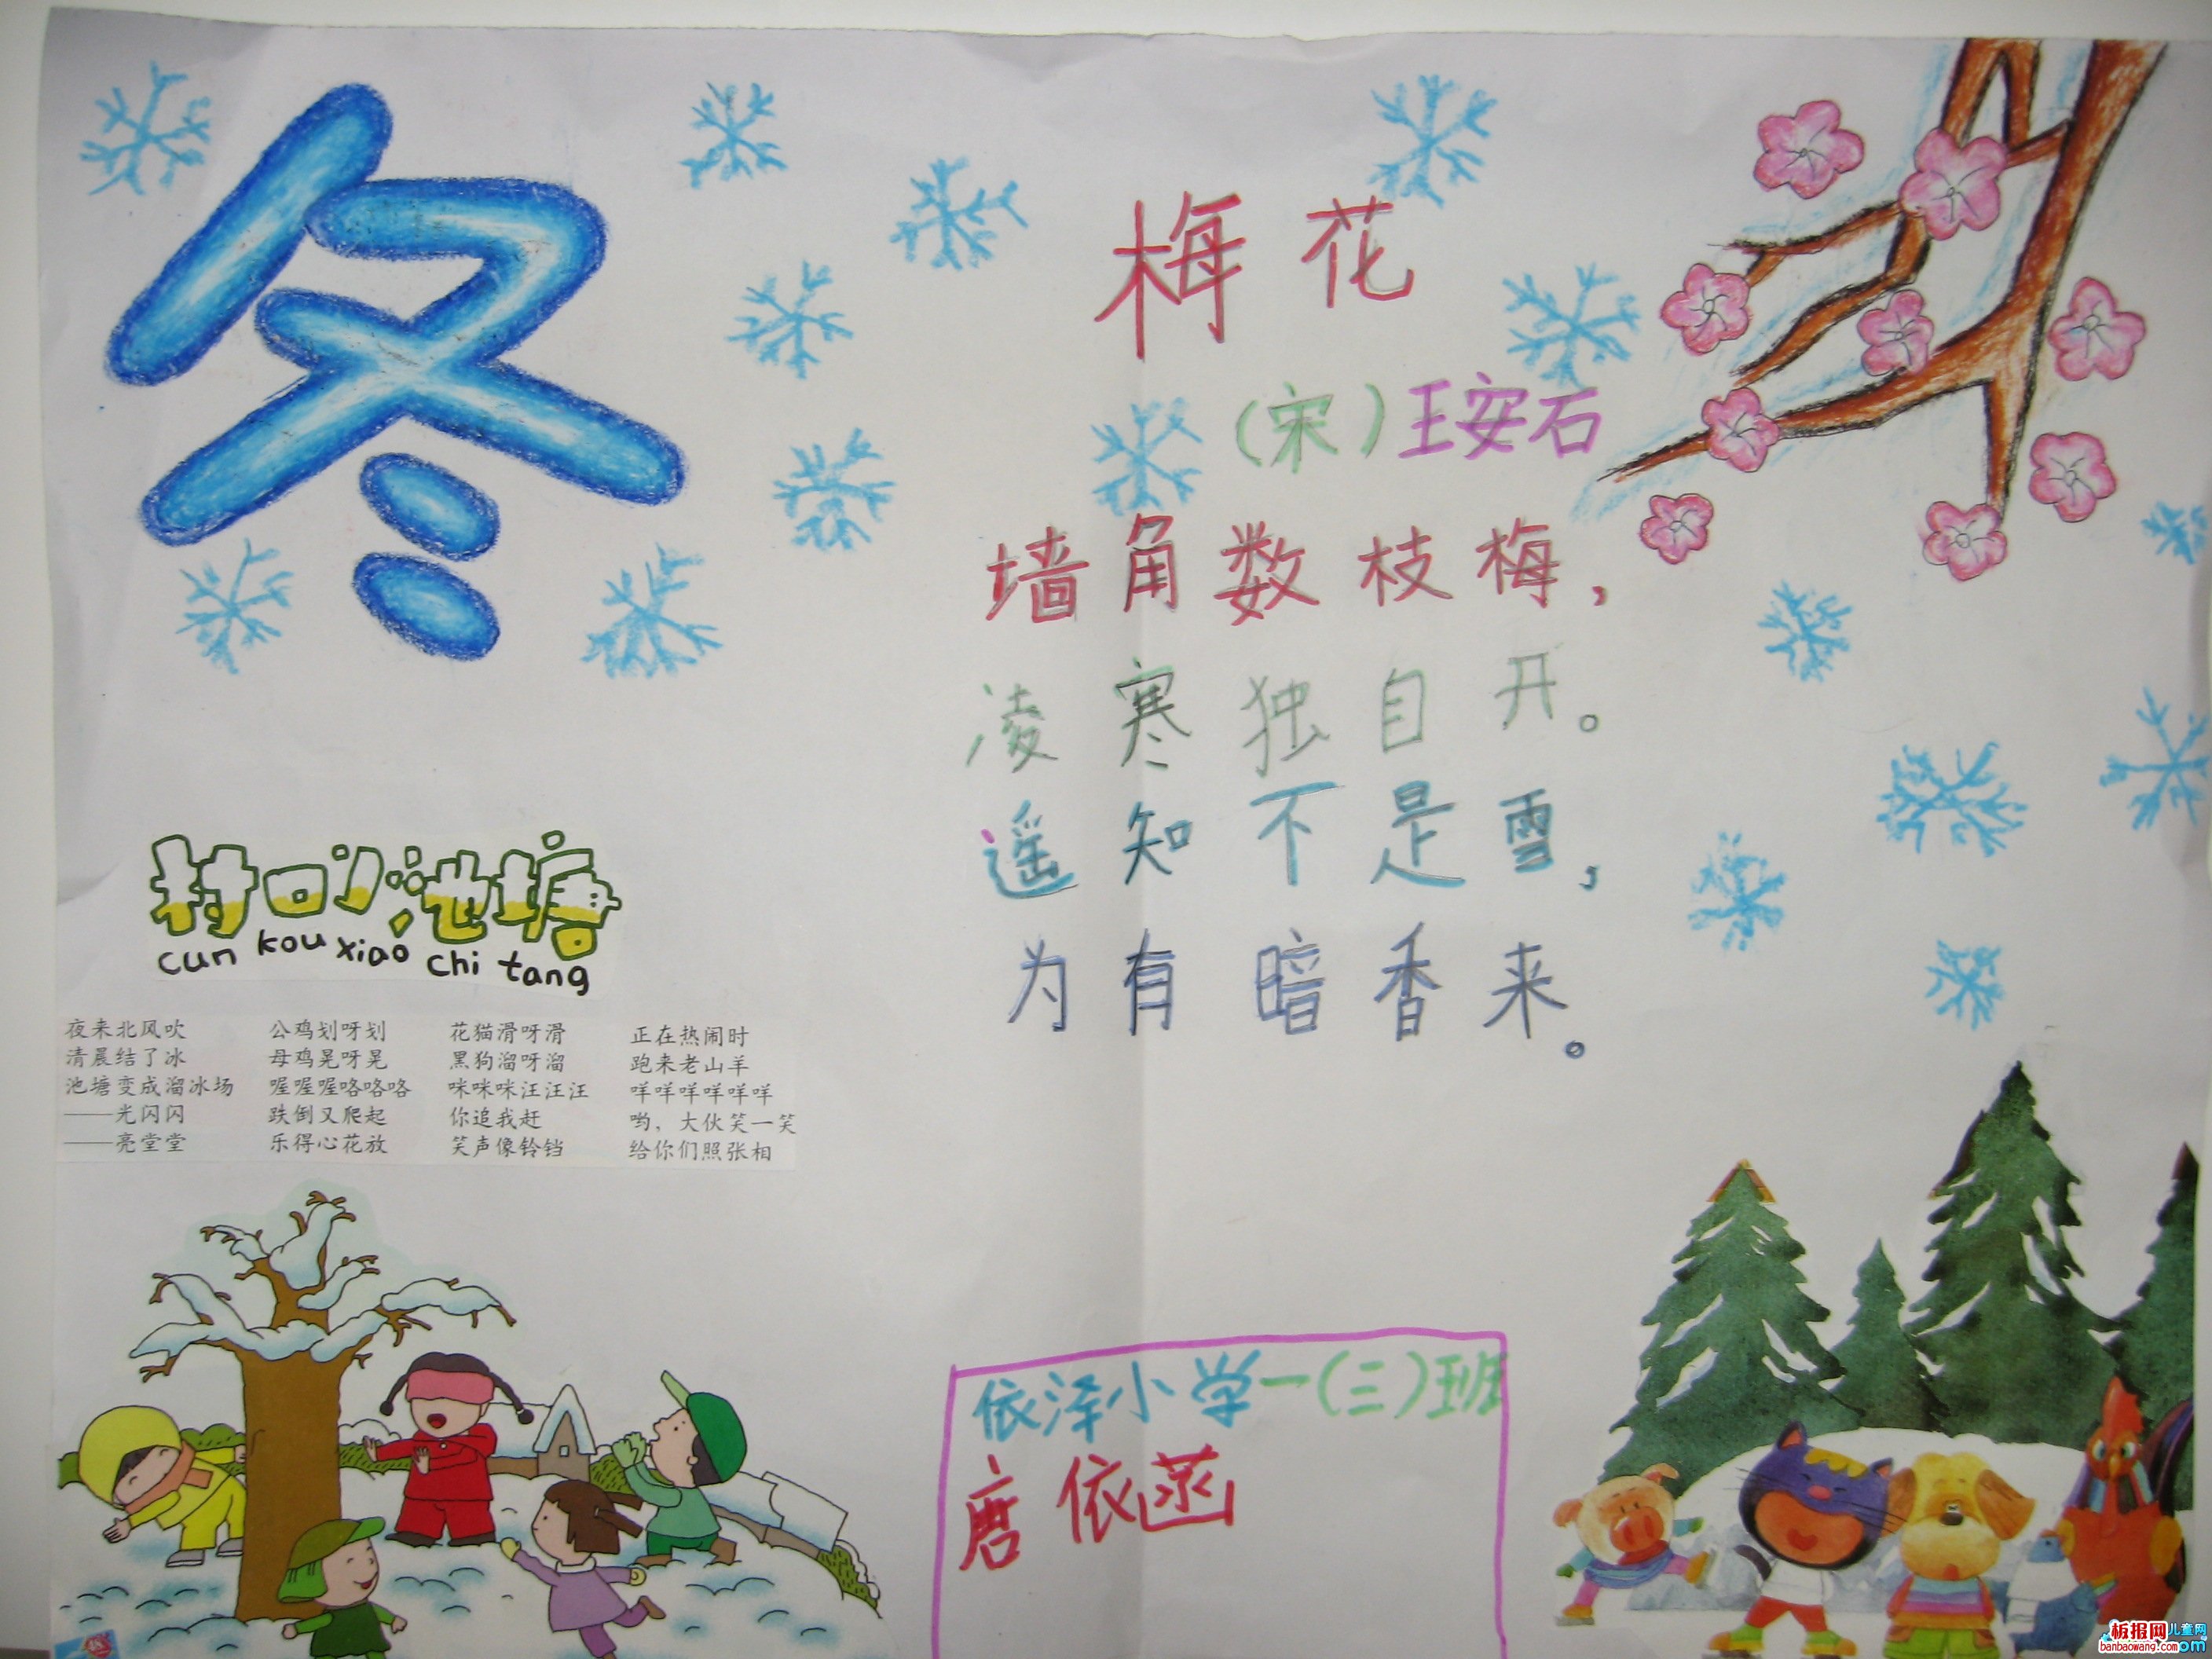 冬
梅花
（宋）王安石
墙角数枝梅，
凌寒独自开。
遥知不是雪，
为有暗香来。
村口小池塘
cun kou xiao chi tang
夜来北风吹
清晨结了冰
池塘变成溜冰场
——光闪闪
——亮堂堂
公鸡划呀划
母鸡晃呀晃
喔喔喔咯咯咯
跌倒又爬起
乐得心花放
花猫滑呀滑
黑狗溜呀溜
咪咪咪汪汪汪
你追我赶
笑声像铃铛
正在热闹时
跑来老山羊
咩咩咩咩咩咩
哟，大伙笑一笑
给你们照张相
依泽小学一（三）班
唐依菡
板报网儿童网
banbaowang.com